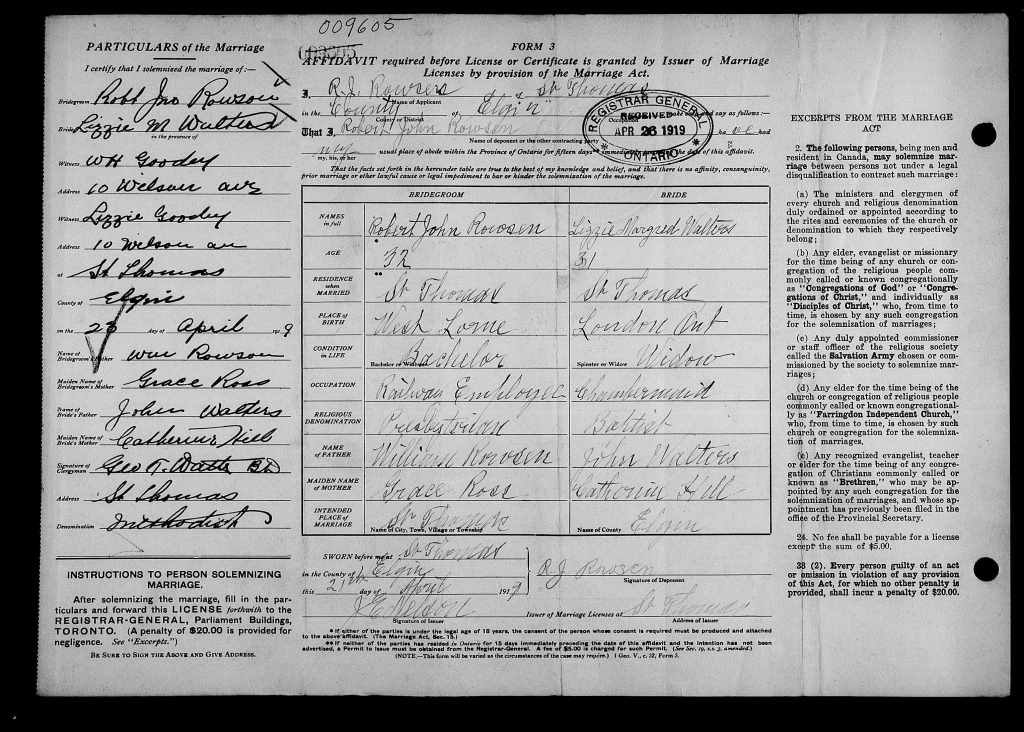 009605
PARTICULARS of the Marriage
I certify that I solemnised the marriage of:—
Bridegroom Robt Jno Rowson
Bride Lizzie M Walters
in the presence of
Witness WH Goodey
Address 10 Wilson ave
Witness Lizzie Goodey
Address 10 Wilson av
at St Thomas
County of Elgin
on the 23 day of April 1919
Name of Bridegroom's Father Wm Rowson
Maiden Name of Bridegroom's Mother Grace Ross
Name of Bride's Father John Walters
Maiden Name of Bride's Mother Catherine Hill
Signature of Clergyman Geo T. Watts BD
Address St Thomas
Denomination Methodist
INSTRUCTIONS TO PERSON SOLEMNIZING
MARRIAGE.
After solemnizing the marriage, fill in the par-
ticulars and forward this LICENSE forthwith to the
REGISTRAR-GENERAL, Parliament Buildings,
TORONTO. (A penalty of $20.00 is provided for
negligence. See "Excerpts.")
BE SURE TO SIGN THE ABOVE AND GIVE ADDRESS.
FORM 3
AFFIDAVIT required before License or Certificate is granted by Issuer of Marriage
Licenses by provision of the Marriage Act.
I, R.J. Rowsen St Thomas
Name of Applicant
in the County of Elgin make oath and say as follows:—
County or District Occupation
That I, Robert John Rowsen have had
Name of deponent or the other contracting party
my usual place of abode within the Province of Ontario for fifteen days** immediately the date of this affidavit.
my, his, or her
REGISTRAR GENERAL
RECEIVED
APR 26 1919
ONTARIO
That the facts set forth in the hereunder table are true to the best of my knowledge and belief, and that there is no affinity, consanguinity,
prior marriage or other lawful cause or legal impediment to bar or hinder the solemnization of the marriage.
BRIDEGROOM BRIDE
NAMES in full Robert John Rowsen Lizzie Margred Walters
AGE 32 31
RESIDENCE when MARRIED St Thomas St Thomas
PLACE of BIRTH West Lorne London Ont
CONDITION IN LIFE Bachelor Widow
Bachelor or Widower Spinster or Widow
OCCUPATION Railway Employee Chambermaid
RELIGIOUS DENOMINATION Presbeterian Baptist
NAME OF FATHER William Rowsen John Walters
MAIDEN NAME OF MOTHER Grace Ross Catherine Hill
INTENDED PLACE OF MARRIAGE St Thomas Elgin
Name of City, Town, Village or Township Name of County
SWORN before me at St Thomas
in the County of Elgin
this 21st day of April 1919
R J Rowsen
Signature of Deponent
Signature of Issuer
Issuer of Marriage Licenses at St Thomas
Address of Issuer
* If either of the parties is under the legal age of 18 years, the consent of the person whose consent is required must be produced and attached
to the above affidavit. (The Marriage Act, Sec. 15.)
** If neither of the parties has resided in Ontario for 15 days immediately preceding the date of this affidavit and the intention has not been
advertised, a Permit to Issue must be obtained from the Registrar-General. A fee of $5.00 is charged for such Permit. (See Sec. 19, s.s. 3, amended.)
(NOTE.—This form will be varied as the circumstances of the case may require.) 1 Geo. V., c. 32, Form 3.
EXCERPTS FROM THE MARRIAGE
ACT
2. The following persons, being men and
resident in Canada, may solemnize mar-
riage between persons not under a legal
disqualification to contract such marriage:
(a) The ministers and clergymen of
every church and religious denomination
duly ordained or appointed according to
the rites and ceremonies of the church or
denomination to which they respectively
belong;
(b) Any elder, evangelist or missionary
for the time being of any church or con-
gregation of the religious people com-
monly called or known congregationally
as "Congregations of God" or "Congre-
gations of Christ," and individually as
"Disciples of Christ," who, from time to
time, is chosen by any such congregation
for the solemnization of marriages;
(c) Any duly appointed commissioner
or staff officer of the religious society
called the Salvation Army chosen or com-
missioned by the society to solemnize mar-
riages;
(d) Any elder for the time being of the
church or congregation of religious people
commonly called or known congregational-
ly as "Farringdon Independent Church,"
who, from time to time, is chosen by such
church or congregation for the solemniza-
tion of marriages,
(e) Any recognized evangelist, teacher
or elder for the time being of any congre-
gation of Christians commonly called or
known as "Brethren," who may be ap-
pointed by any such congregation for the
solemnization of marriages, and whose ap-
pointment has previously been filed in the
office of the Provincial Secretary.
24. No fee shall be payable for a license
except the sum of $5.00.
38 (2). Every person guilty of an act
or omission in violation of any provision
of this Act, for which no other penalty is
provided, shall incur a penalty of $20.00.